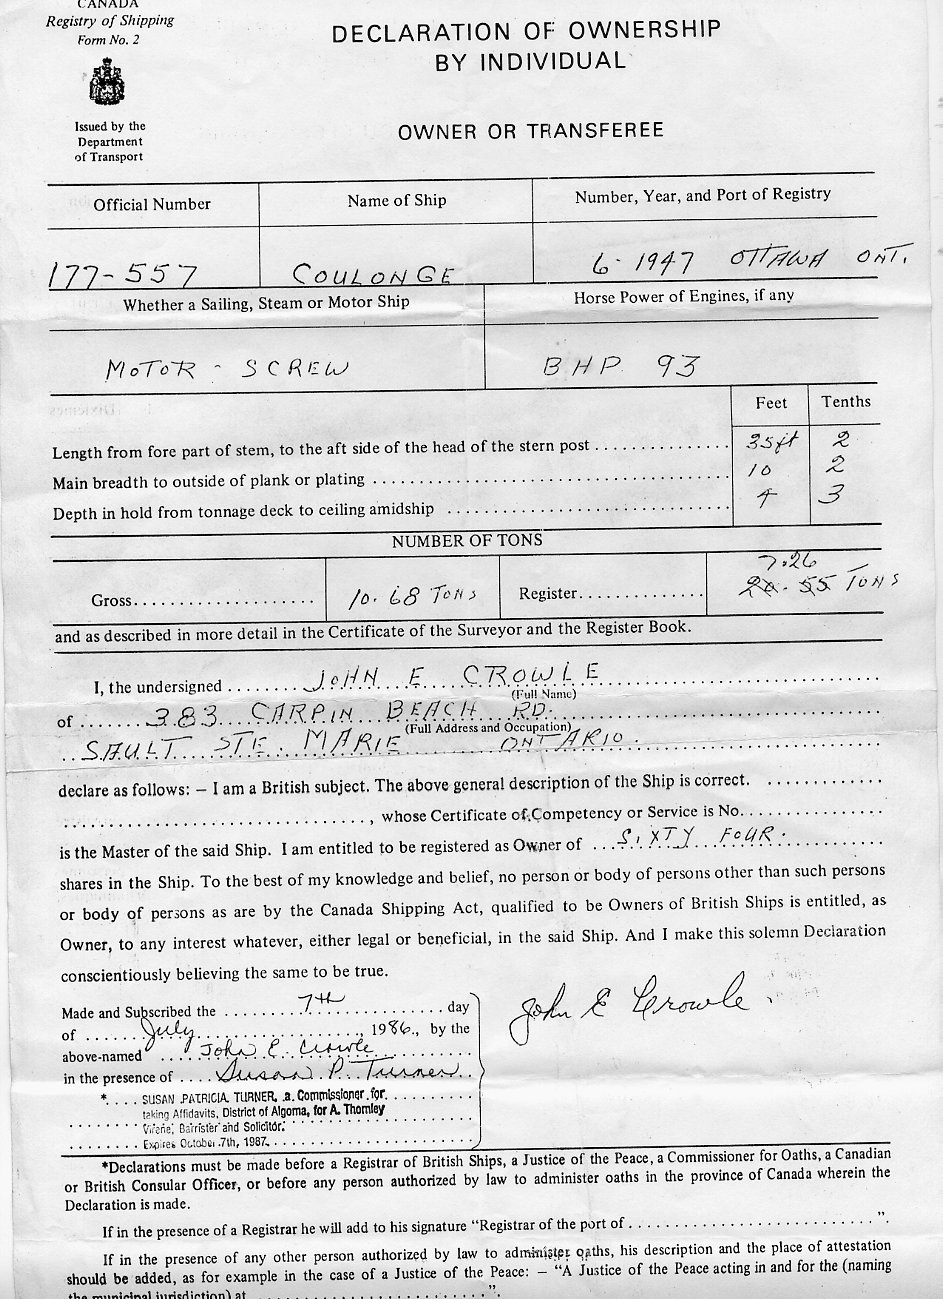 CANADA
Registry of Shipping
Form No. 2
Issued by the
Department
of Transport
DECLARATION OF OWNERSHIP
BY INDIVIDUAL
OWNER OR TRANSFEREE
Official Number Name of Ship Number, Year, and Port of Registry
177-557 COULONGE 6-1947 OTTAWA ONT.
Whether a Sailing, Steam or Motor Ship Horse Power of Engines, if any
MOTOR - SCREW BHP. 93
Feet Tenths
Length from fore part of stem, to the aft side of the head of the stern post 35ft 2
Main breadth to outside of plank or plating 10 2
Depth in hold from tonnage deck to ceiling amidship 4 3
NUMBER OF TONS
7.26
Gross 10.68 TONS Register 20.55 TONS
and as described in more detail in the Certificate of the Surveyor and the Register Book.
I, the undersigned JOHN E CROWLE
(Full Name)
of 383 CARPIN BEACH RD.
(Full Address and Occupation)
SAULT STE. MARIE ONTARIO.
declare as follows: – I am a British subject. The above general description of the Ship is correct.
, whose Certificate of Competency or Service is No.
is the Master of the said Ship. I am entitled to be registered as Owner of SIXTY FOUR.
shares in the Ship. To the best of my knowledge and belief, no person or body of persons other than such persons
or body of persons as are by the Canada Shipping Act, qualified to be Owners of British Ships is entitled, as
Owner, to any interest whatever, either legal or beneficial, in the said Ship. And I make this solemn Declaration
conscientiously believing the same to be true.
Made and Subscribed the 7th day
of July, 1986., by the
above-named John E. Crowle
in the presence of Susan P. Turner
John E Crowle
* SUSAN PATRICIA TURNER, a Commissioner for
taking Affidavits, District of Algoma, for A. Thomley
Barrister and Solicitor.
Expires October 7th, 1987.
*Declarations must be made before a Registrar of British Ships, a Justice of the Peace, a Commissioner for Oaths, a Canadian
or British Consular Officer, or before any person authorized by law to administer oaths in the province of Canada wherein the
Declaration is made.
If in the presence of a Registrar he will add to his signature “Registrar of the port of ”.
If in the presence of any other person authorized by law to administer oaths, his description and the place of attestation
should be added, as for example in the case of a Justice of the Peace: – “A Justice of the Peace acting in and for the (naming
the municipal jurisdiction) at ”.